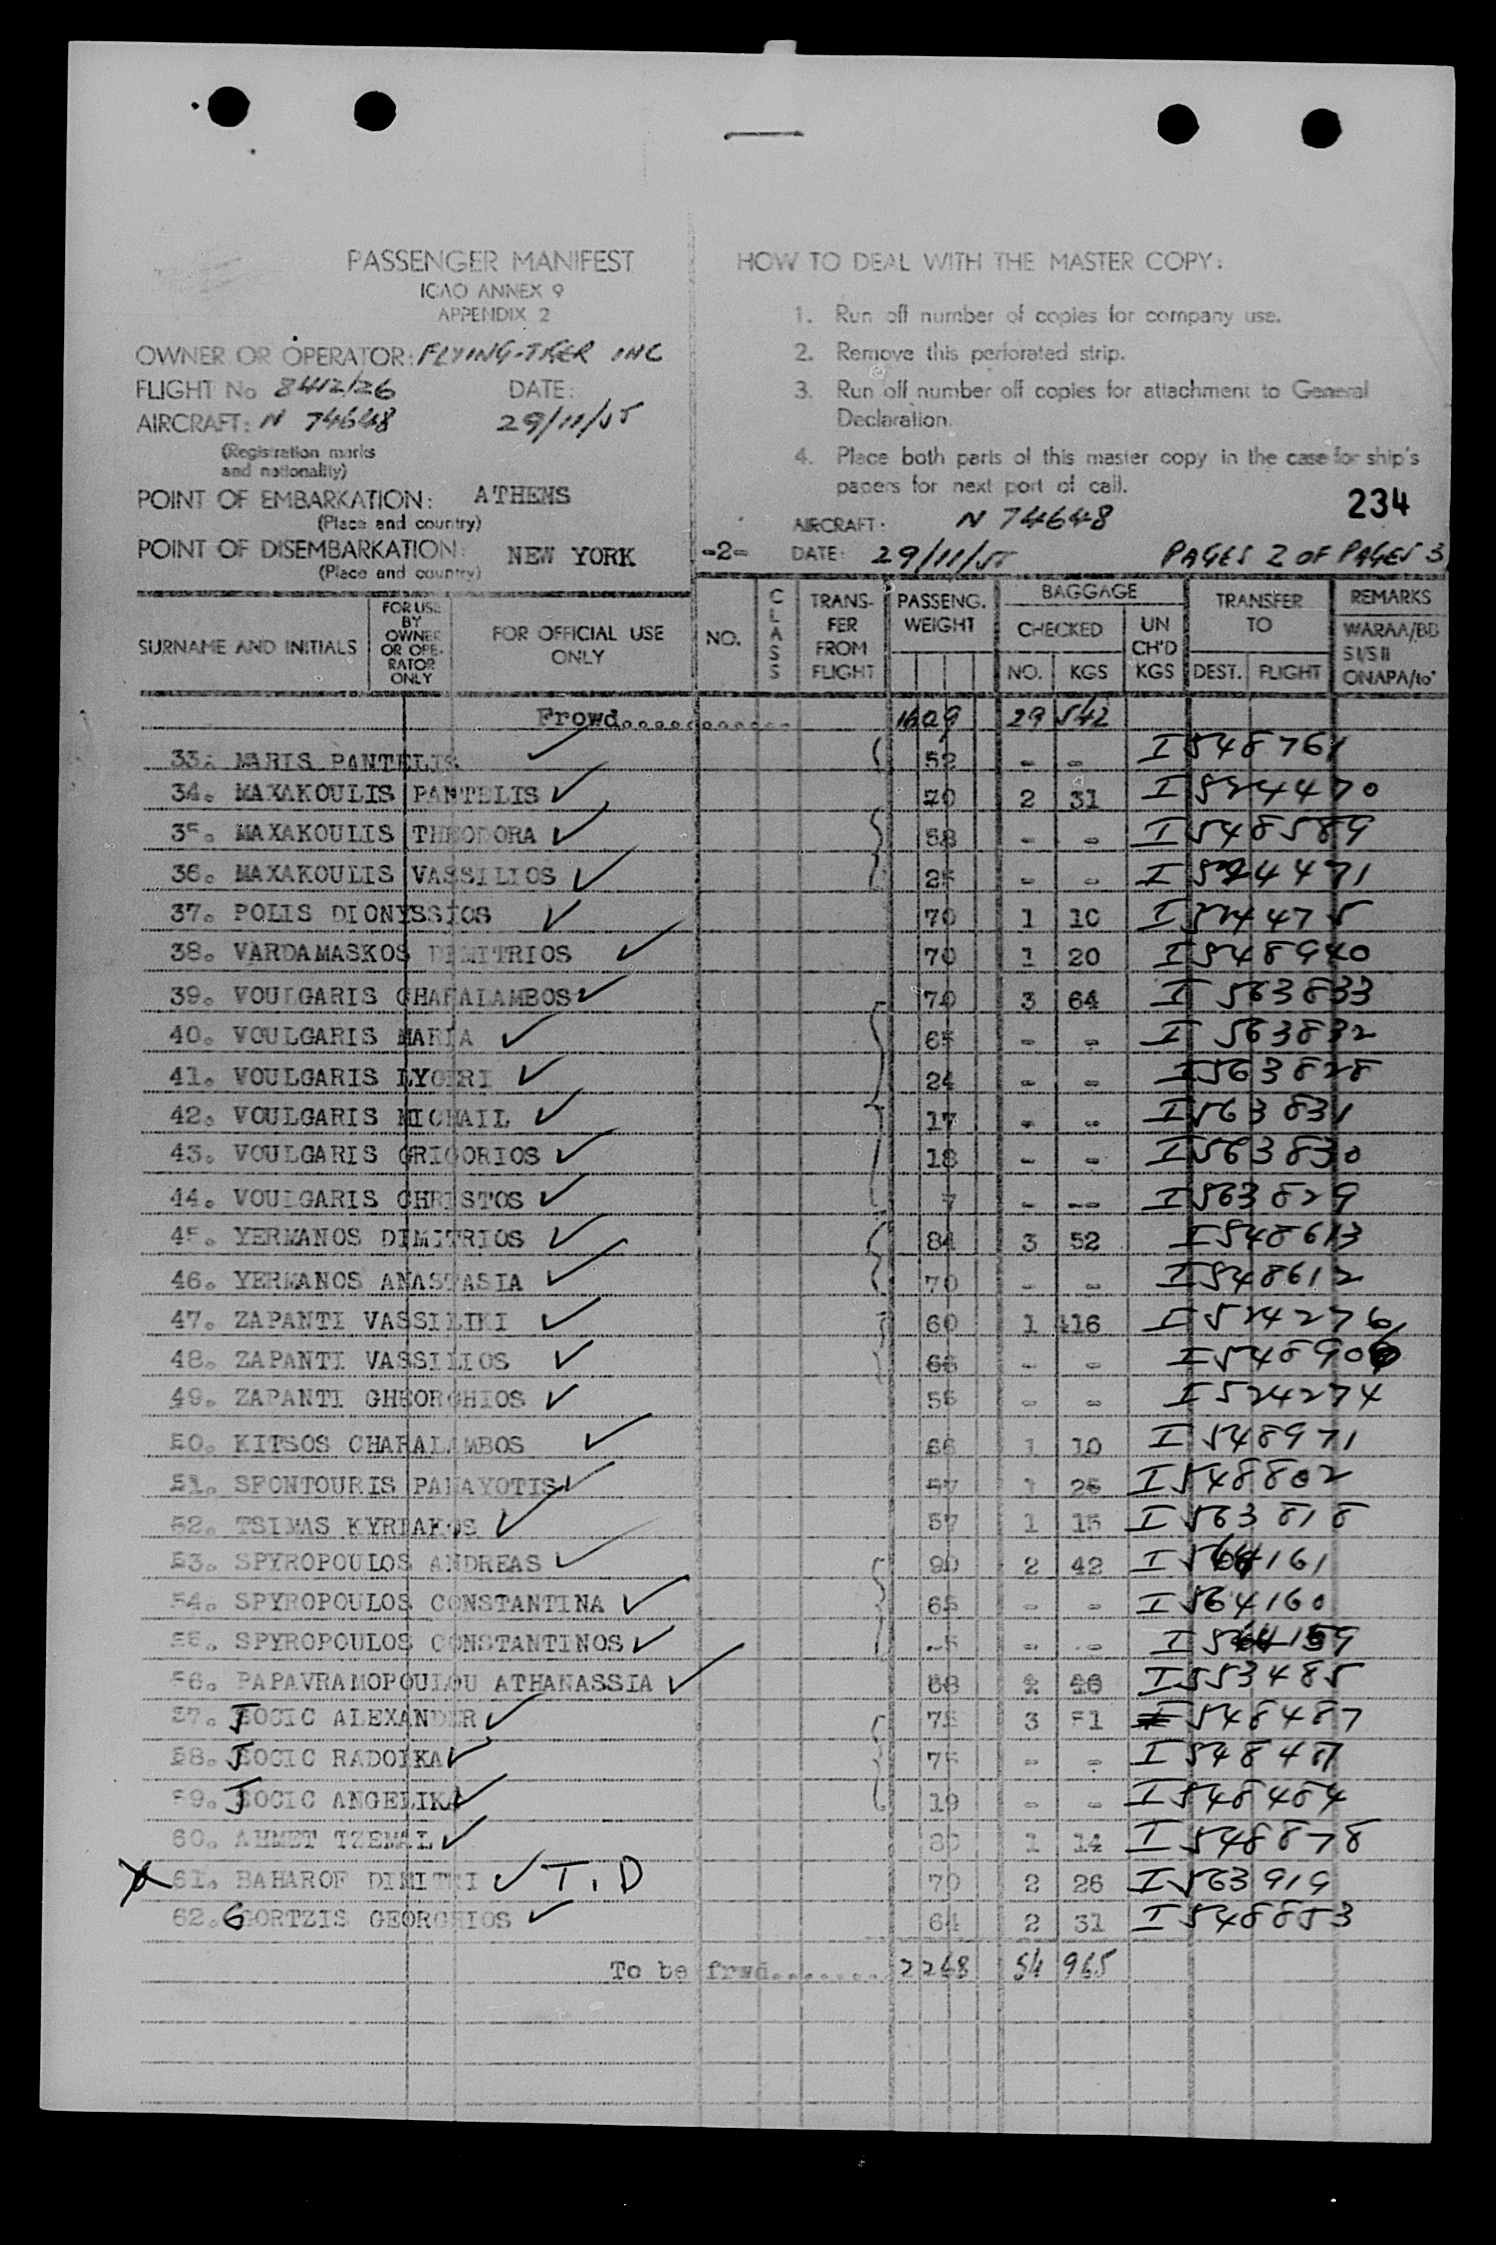 PASSENGER MANIFEST
ICAO ANNEX 9
APPENDIX 2
OWNER OR OPERATOR: FLYING-TIGER INC
FLIGHT No 8412/26 DATE:
AIRCRAFT: N 74648 29/11/55
(Registration marks
and nationality)
POINT OF EMBARKATION: ATHENS
(Place and country)
POINT OF DISEMBARKATION: NEW YORK
(Place and country)
HOW TO DEAL WITH THE MASTER COPY:
1. Run off number of copies for company use.
2. Remove this perforated strip.
3. Run off number off copies for attachment to General
Declaration.
4. Place both parts of this master copy in the case for ship's
papers for next port of call.
234
AIRCRAFT: N 74648
-2- DATE: 29/11/55 PAGES 2 OF PAGES 3
SURNAME AND INITIALS
FOR USE
BY
OWNER
OR OPE-
RATOR
ONLY
FOR OFFICIAL USE
ONLY
NO.
CLASS
TRANS-
FER
FROM
FLIGHT
PASSENG.
WEIGHT
BAGGAGE
CHECKED
NO. KGS
UN
CH'D
KGS
TRANSFER
TO
DEST. FLIGHT
REMARKS
WARAA/BD
SI/SII
ONAPA/to'
Frowd............ 1609 29 542
33. MARIS PANTELIS 52 - - I 548761
34. MAXAKOULIS PANTELIS 70 2 31 I 524470
35. MAXAKOULIS THEODORA 58 - - I 548589
36. MAXAKOULIS VASSILIOS 25 - - I 524471
37. POLIS DIONYSSIOS 70 1 10 I 524475
38. VARDAMASKOS DIMITRIOS 70 1 20 I 548940
39. VOULGARIS CHARALAMBOS 70 3 64 I 563833
40. VOULGARIS MARIA 65 - - I 563832
41. VOULGARIS LYGERI 24 - - I 563828
42. VOULGARIS MICHAIL 17 - - I 563831
43. VOULGARIS GRIGORIOS 18 - - I 563830
44. VOULGARIS CHRISTOS 7 - -- I 563829
45. YERMANOS DIMITRIOS 84 3 52 I 548613
46. YERMANOS ANASTASIA 70 - - I 548612
47. ZAPANTI VASSILIKI 60 1 16 I 524276
48. ZAPANTI VASSILIOS 66 - - I 548906
49. ZAPANTI GHEORGHIOS 55 - - I 524274
50. KITSOS CHARALAMBOS 66 1 10 I 548971
51. SPONTOURIS PANAYOTIS 57 1 25 I 548802
52. TSIMAS KYRIAKOS 57 1 15 I 563818
53. SPYROPOULOS ANDREAS 90 2 42 I 564161
54. SPYROPOULOS CONSTANTINA 65 - - I 564160
55. SPYROPOULOS CONSTANTINOS - - I 564159
56. PAPAVRAMOPOULOU ATHANASSIA 58 2 I 553485
57. JOCIC ALEXANDER 75 3 51 I 548487
58. JOCIC RADOIKA 75 - - I 54848
59. JOCIC ANGELIKA 19 - - I 548484
60. AHMET TZEMAL 80 1 14 I 548878
X 61. BAHAROF DIMITRI T.D 70 2 26 I 563919
62. GORTZIS GEORGHIOS 64 2 31 I 548853
To be frwd........ 2268 54 965